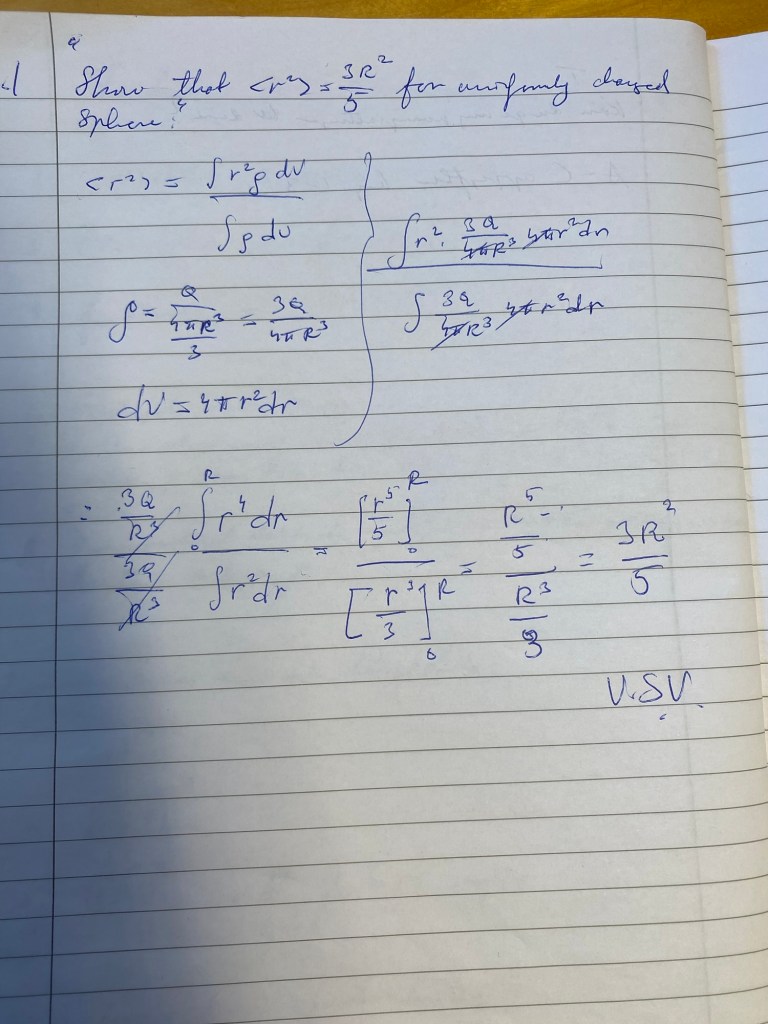 Show that <r²> = 3R²/5 for uniformly charged
sphere?
<r²> = ∫r²ρ dV / ∫ρ dv
ρ = Q / (4πR³/3) = 3Q / 4πR³
dV = 4πr²dr
∫r² · 3Q/4πR³ 4πr²dr / ∫ 3Q/4πR³ 4πr²dr
= (3Q/R³) / (3Q/R³) ∫₀ᴿ r⁴ dr / ∫r²dr = [r⁵/5]₀ᴿ / [r³/3]₀ᴿ = (R⁵/5) / (R³/3) = 3R²/5
V.S.V.